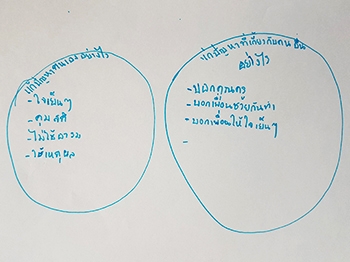 แก้ปัญหาตนเองอย่างไร
- ใจเย็นๆ
- คุมสติ
- ไม่ใช้อารม
- ใช้เหตุผล
แก้ปัญหาที่เกี่ยวกับคนอื่น
อย่างไร
- บอกคุณครู
- บอกเพื่อนช่วยกันทำ
- บอกเพื่อนให้ใจเย็นๆ
-